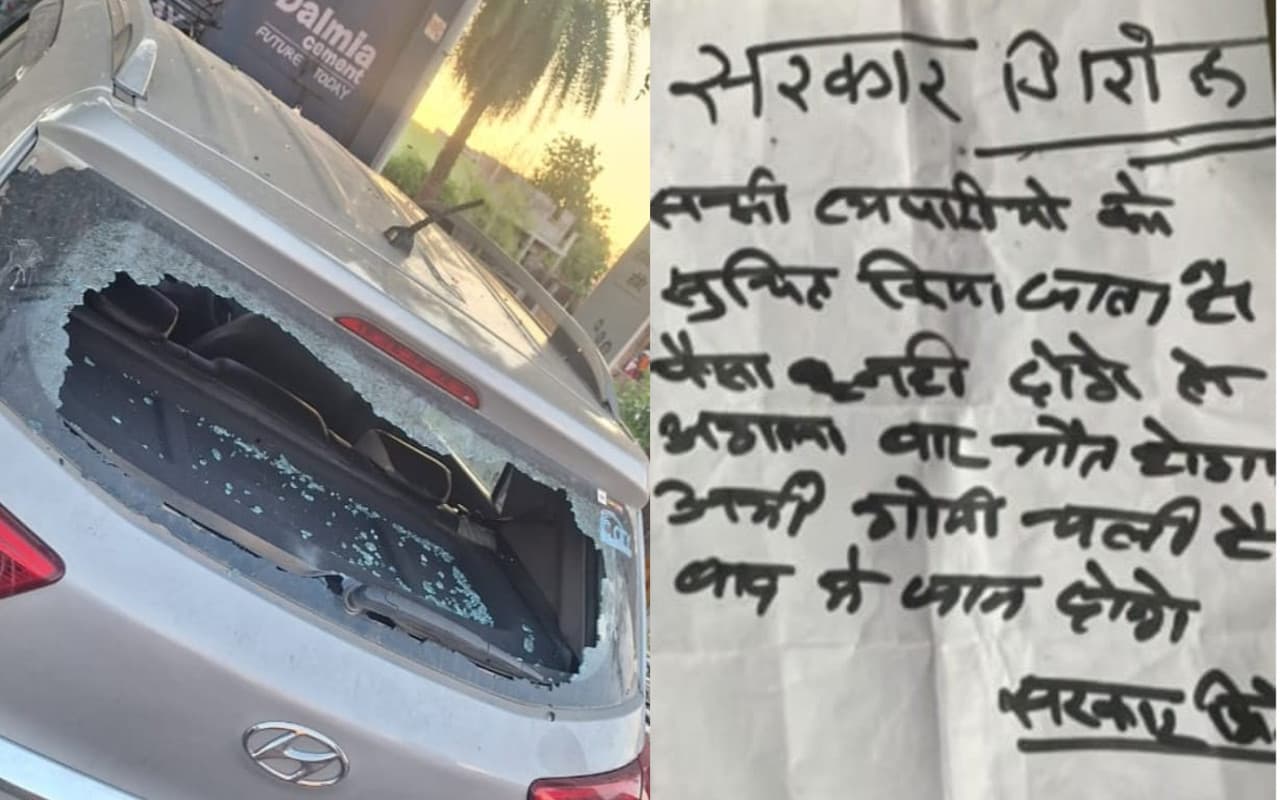 Dalmia
cement
FUTURE TODAY
सरकार गिरोह
सभी व्यापारीयो को
सुचित किया जाता है
पैसा नही दोगे तो
अगला बार मौत होगा
अभी गोली चली है
बाद मे जान दोगे
सरकार